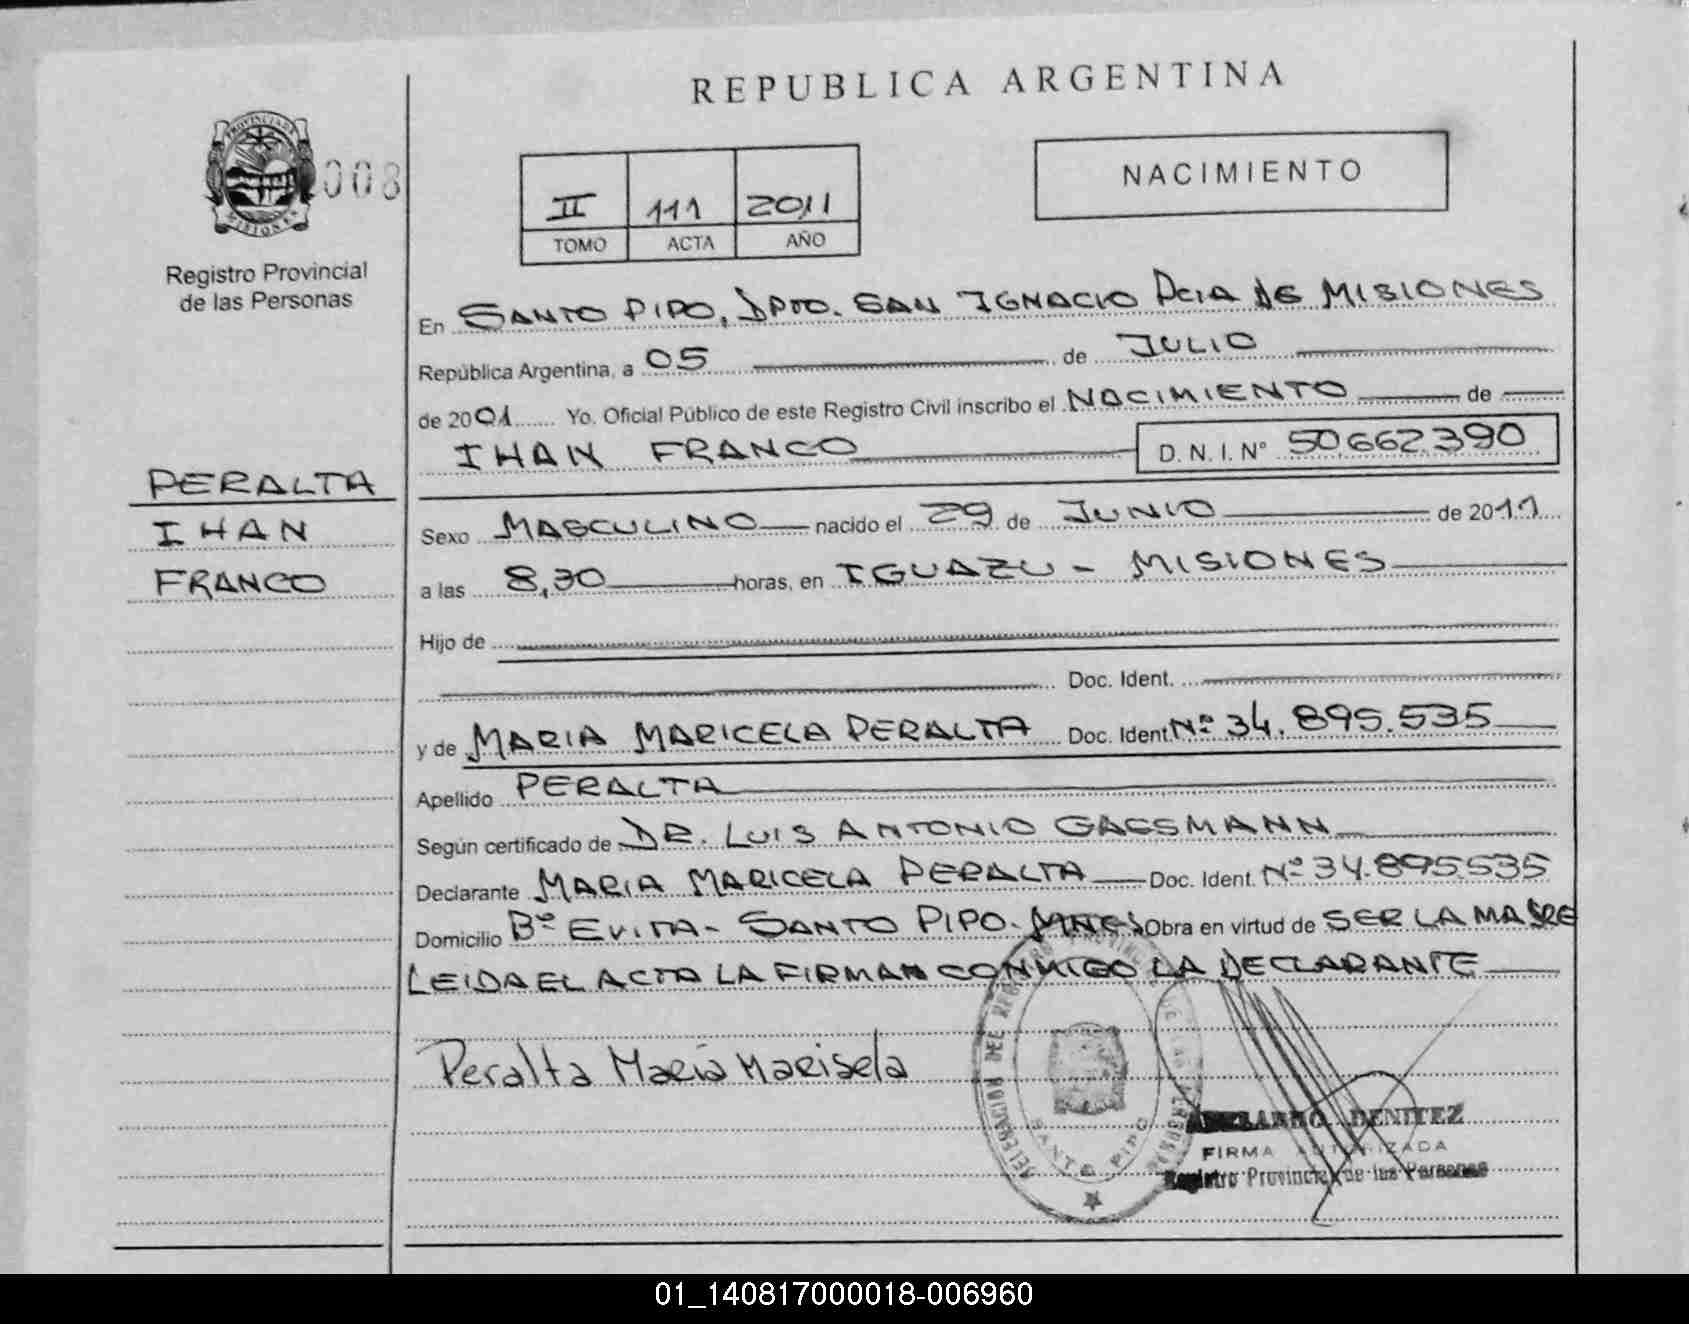 REPUBLICA ARGENTINA
PROVINCIA DE MISIONES
008
Registro Provincial
de las Personas
II 111 2011
TOMO ACTA AÑO
NACIMIENTO
En SANTO PIPO, DPTO. SAN IGNACIO PCIA DE MISIONES
República Argentina, a 05 de JULIO
de 2001 Yo. Oficial Público de este Registro Civil inscribo el NACIMIENTO de
IHAN FRANCO D. N. I. Nº 50.662.390
PERALTA
IHAN
FRANCO
Sexo MASCULINO nacido el 29 de JUNIO de 2011
a las 8,30 horas, en IGUAZU - MISIONES
Hijo de
Doc. Ident.
y de MARIA MARICELA PERALTA Doc. Ident. Nº 34.895.535
Apellido PERALTA
Según certificado de DR. LUIS ANTONIO GASSMANN
Declarante MARIA MARICELA PERALTA Doc. Ident. Nº 34.895.535
Domicilio Bº EVITA - SANTO PIPO - MNES Obra en virtud de SER LA MADRE
LEIDA EL ACTA LA FIRMAN CONMIGO LA DECLARANTE
Peralta María Marisela
SANTO PIPO
BENITEZ
FIRMA AUTORIZADA
Registro Provincial de las Personas
01_140817000018-006960